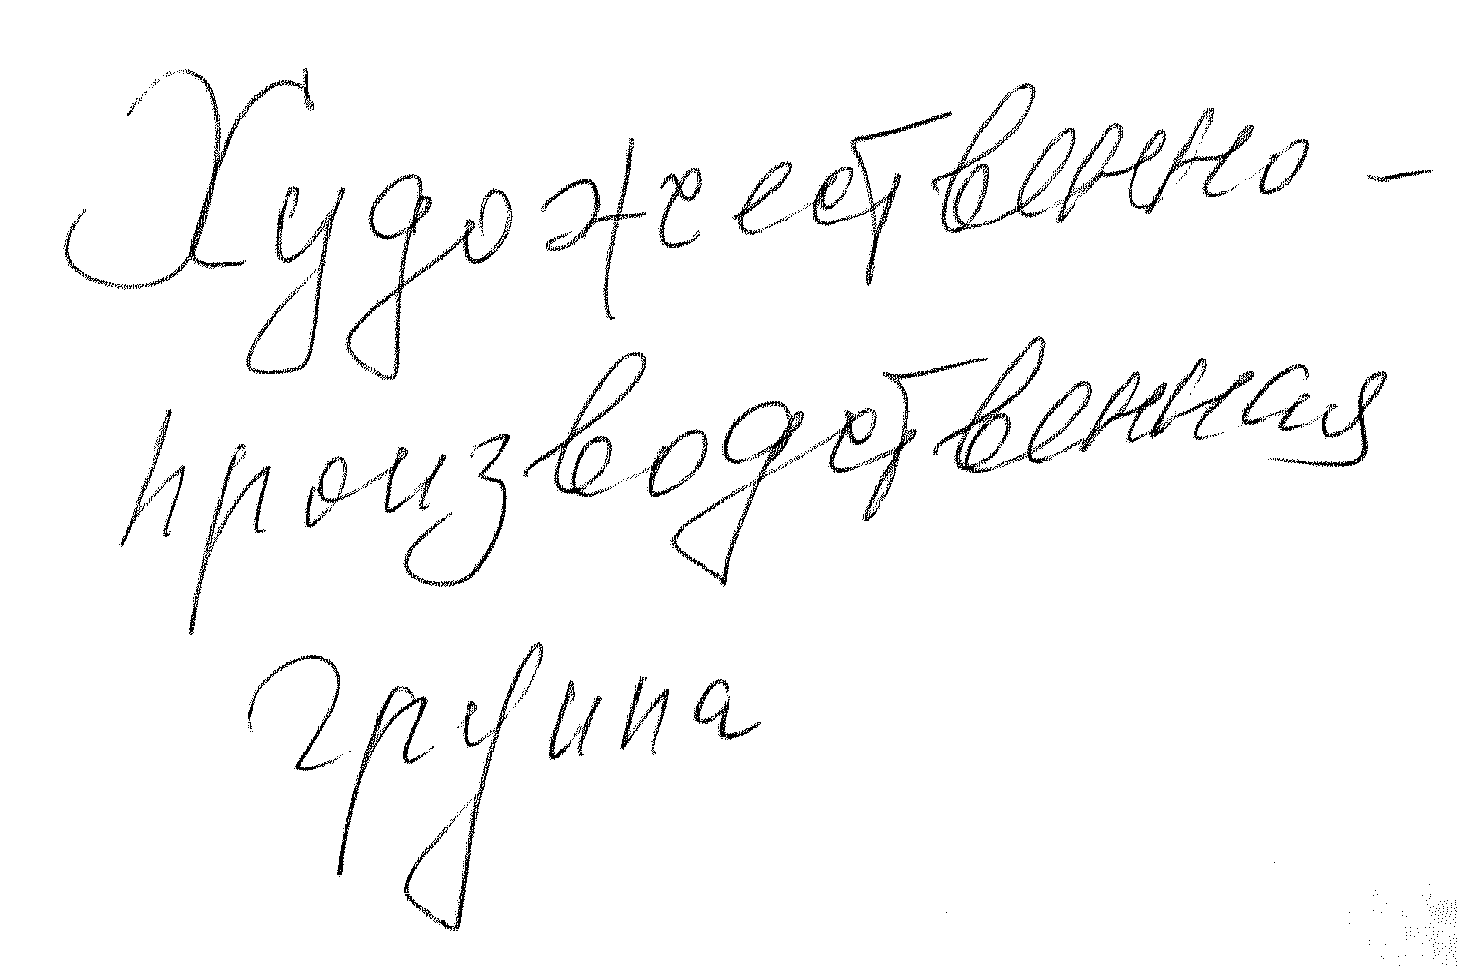 Художественно-
производственная
группа